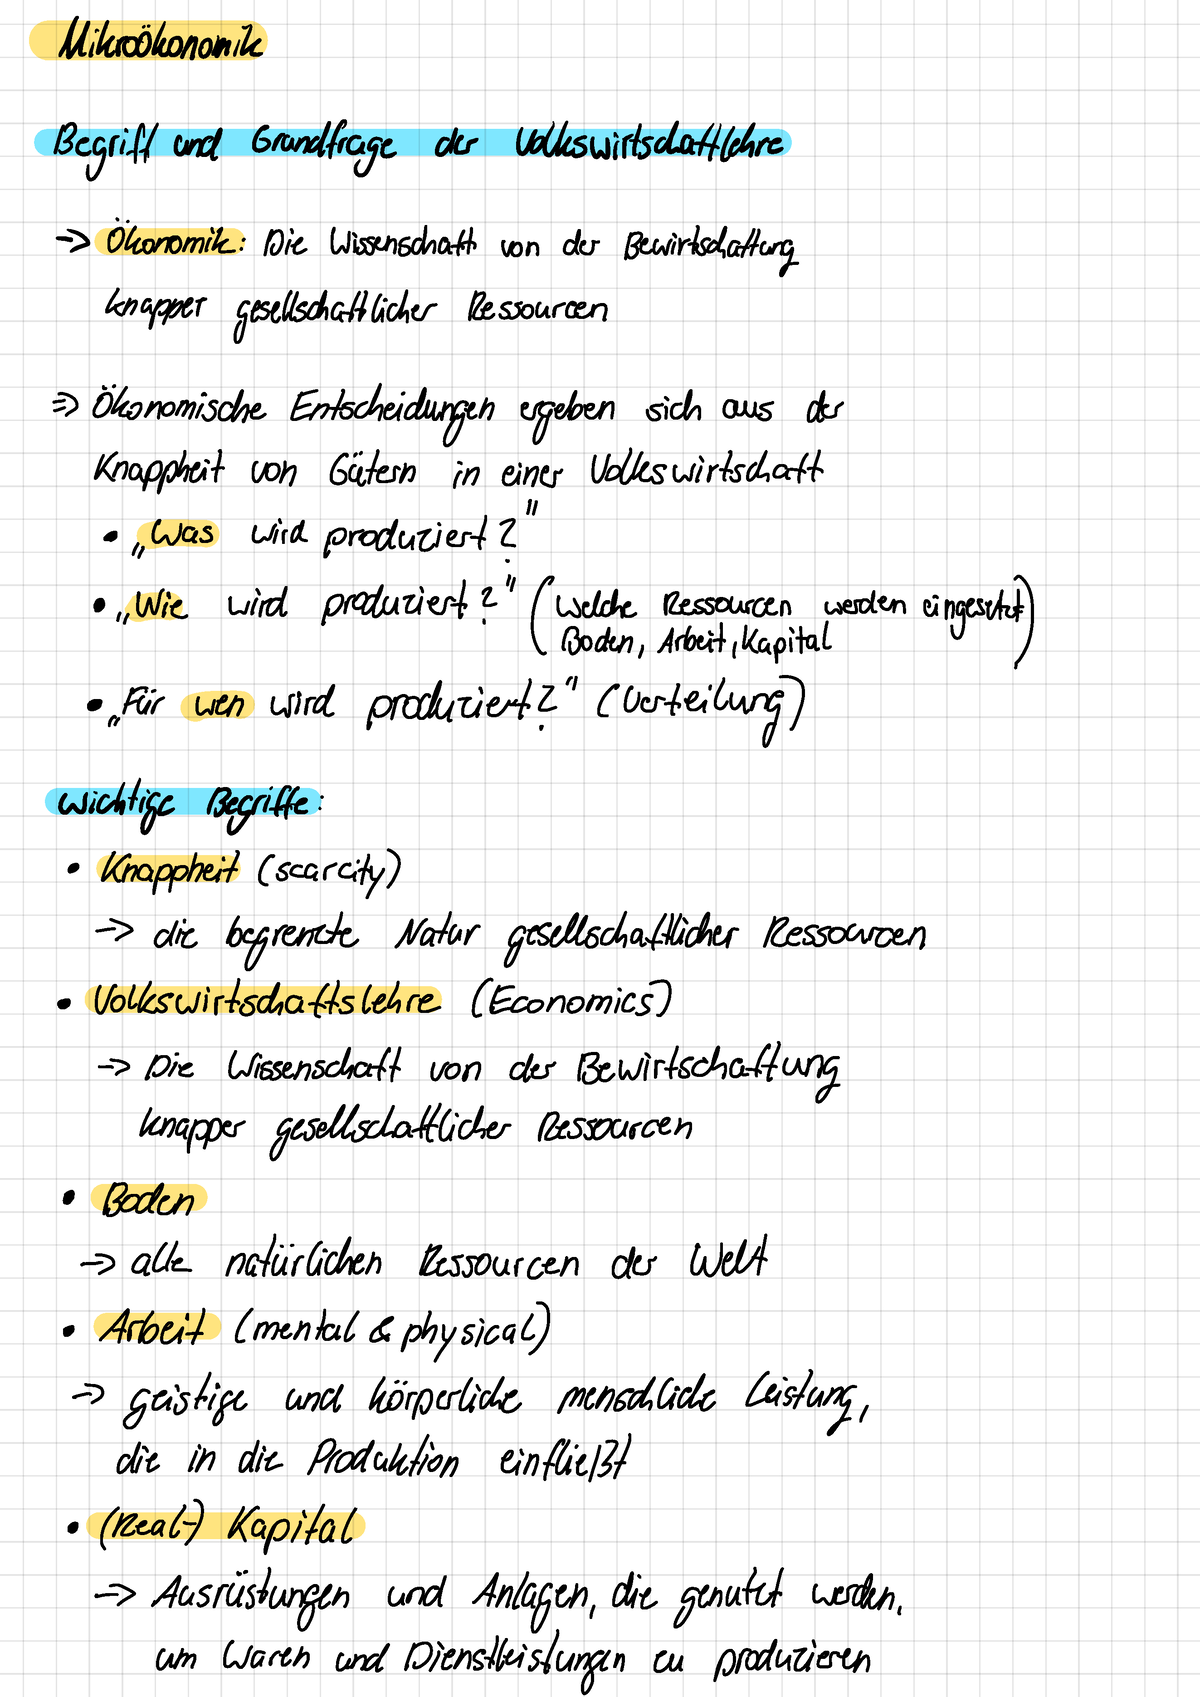 Mikroökonomik
Begriff und Grundfrage der Volkswirtschaftlehre
→ Ökonomik: Die Wissenschaft von der Bewirtschaftung
knapper gesellschaftlicher Ressourcen
⇒ Ökonomische Entscheidungen ergeben sich aus der
Knappheit von Gütern in einer Volkswirtschaft
• „Was wird produziert?"
• „Wie wird produziert?" (Welche Ressourcen werden eingesetzt
Boden, Arbeit, Kapital)
• „Für wen wird produziert?" (Verteilung)
wichtige Begriffe:
• Knappheit (scarcity)
→ die begrenzte Natur gesellschaftlicher Ressourcen
• Volkswirtschaftslehre (Economics)
→ Die Wissenschaft von der Bewirtschaftung
knapper gesellschaftlicher Ressourcen
• Boden
→ alle natürlichen Ressourcen der Welt
• Arbeit (mental & physical)
→ geistige und körperliche menschliche Leistung,
die in die Produktion einfließt
• (Real-) Kapital
→ Ausrüstungen und Anlagen, die genutzt werden,
um Waren und Dienstleistungen zu produzieren